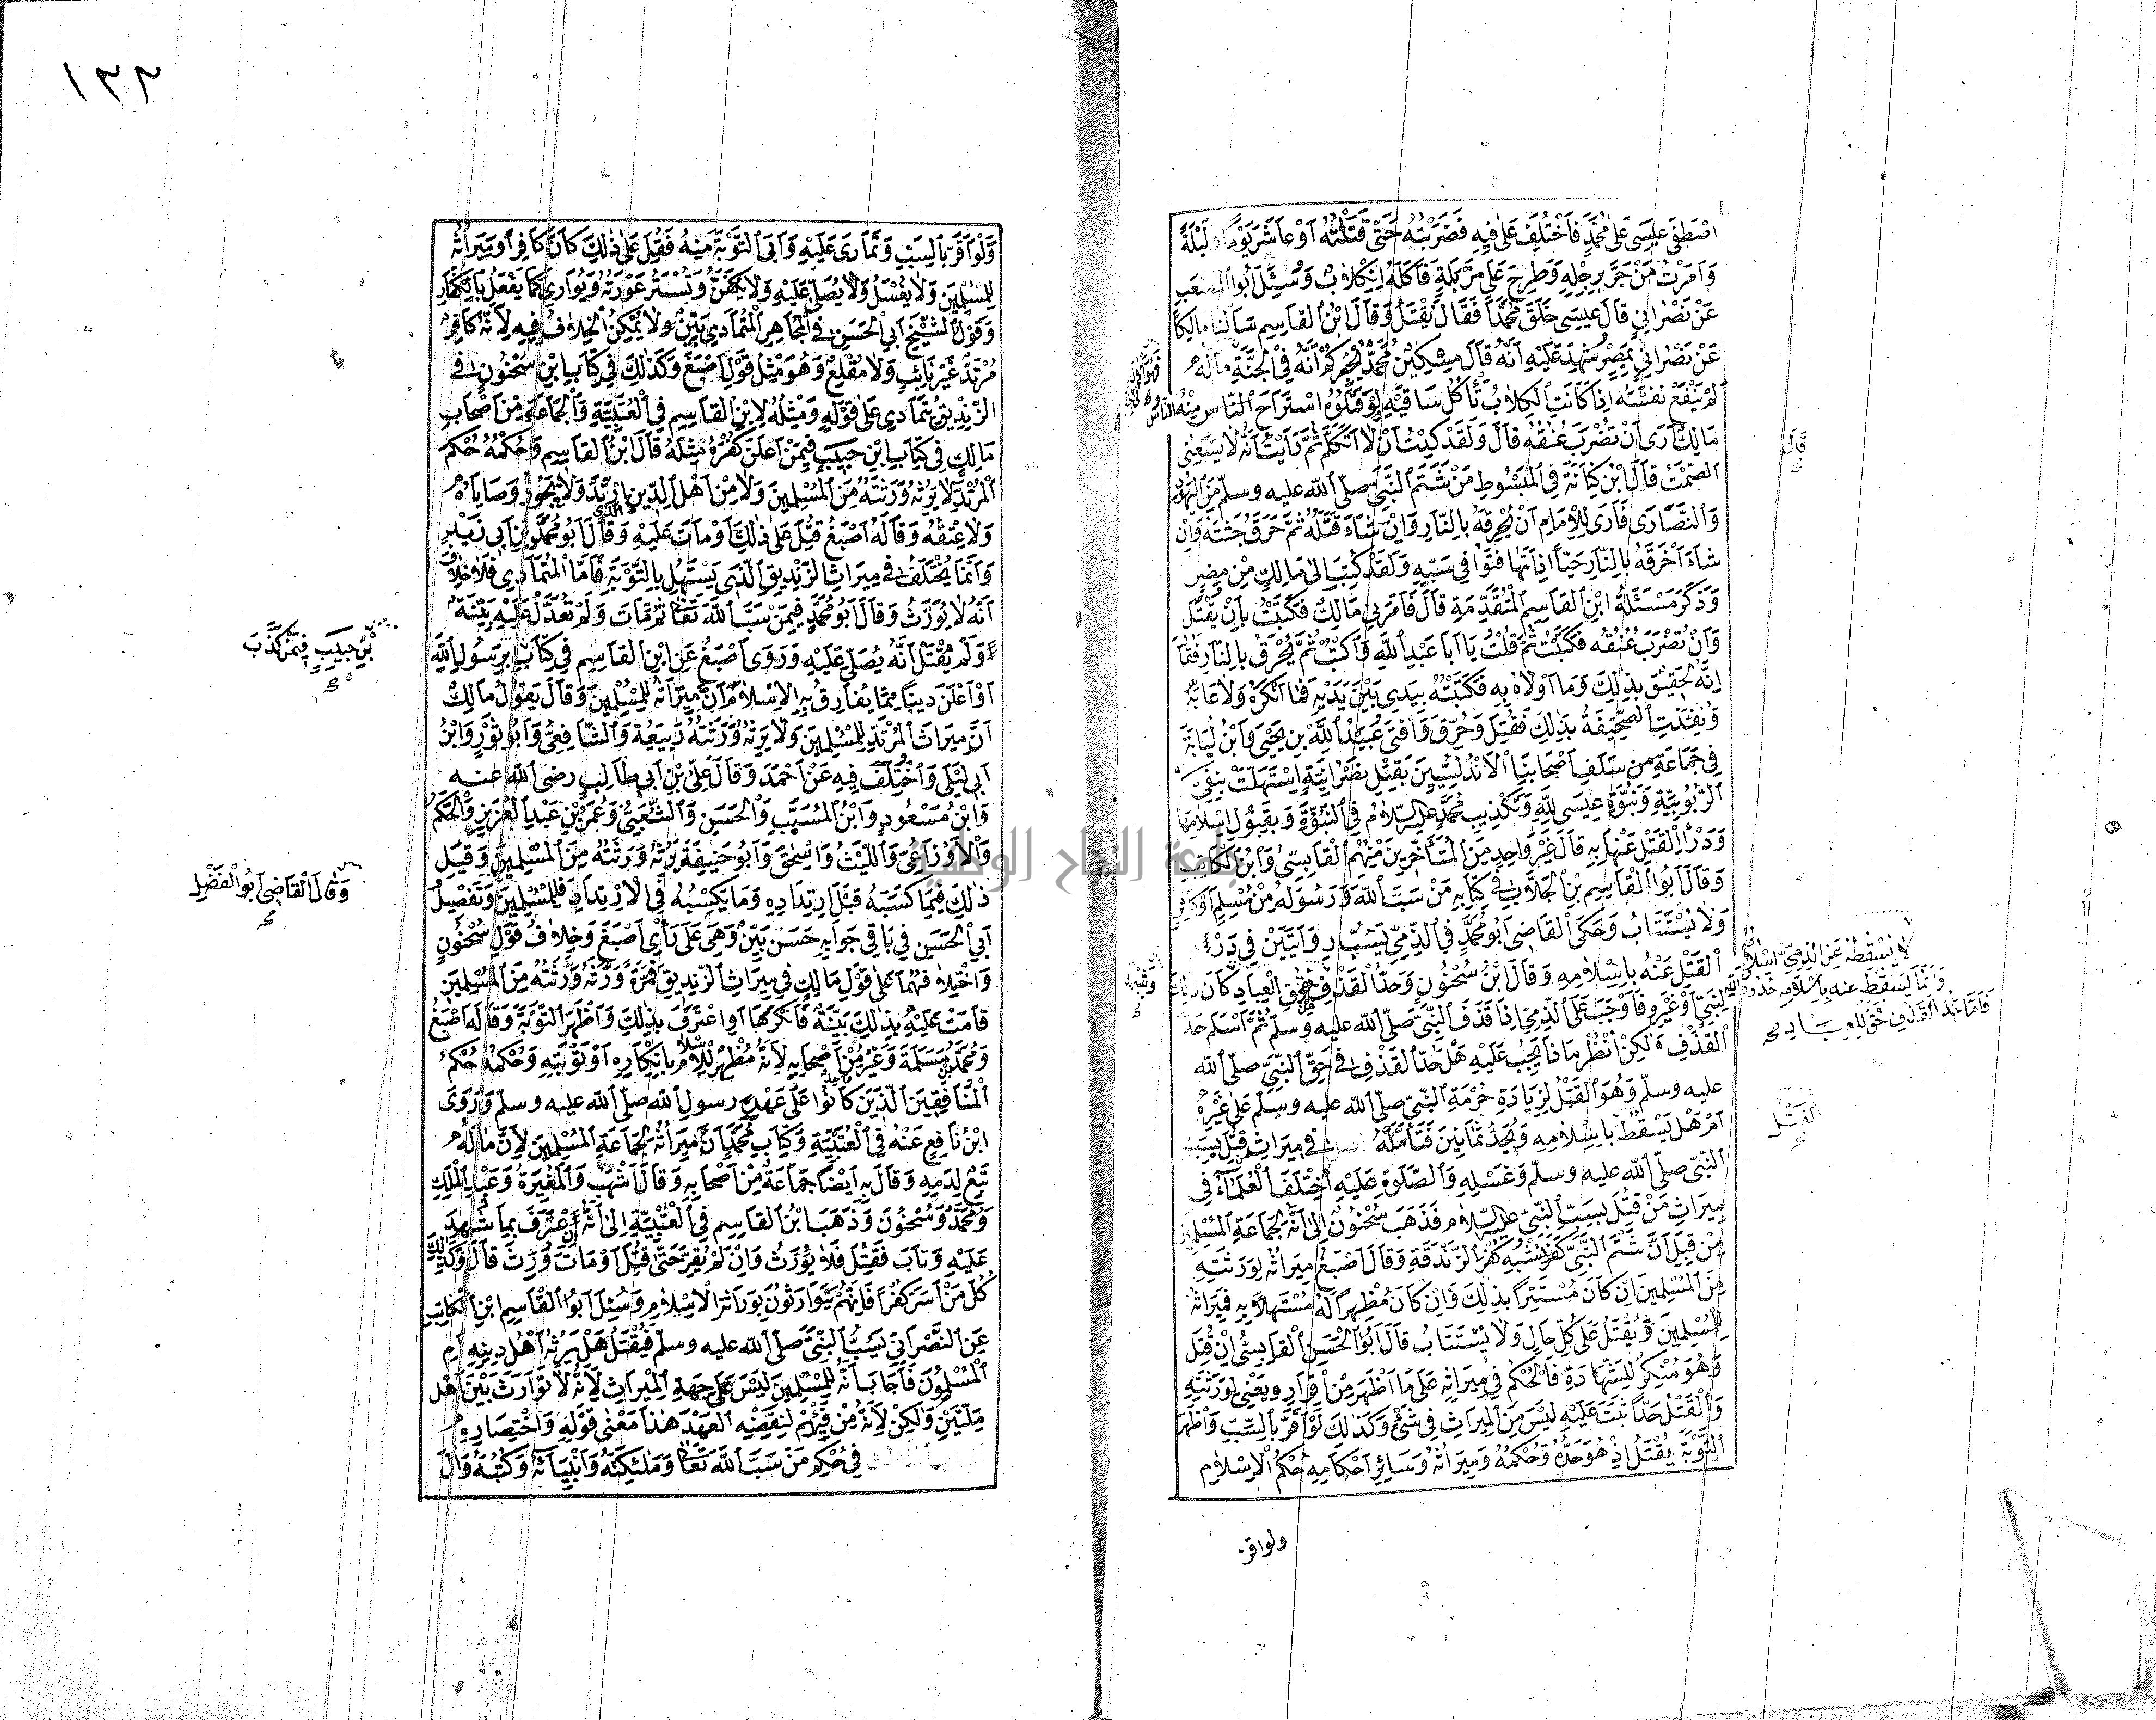 اصْطَفَى عِيسَى عَلَى مُحَمَّدٍ فَاخْتُلِفَ عَلَى فِيهِ فَضَرَبْتُهُ حَتَّى قَتَلْتُهُ اَوْ عَاشَ يَوْمًا وَلَيْلَةً
وَاَمَرْتُ مَنْ جَرَّ بِرِجْلِهِ وَطُرِحَ عَلَى مَزْبَلَةٍ فَاَكَلَهُ الْكِلَابُ وَسُئِلَ اَبُو الْمُصْعَبِ
عَنْ نَصْرَانِيٍّ قَالَ عِيسَى خَلَقَ مُحَمَّدًا فَقَالَ يُقْتَلُ وَقَالَ ابْنُ الْقَاسِمِ سَاَلْنَا مَالِكًا
عَنْ نَصْرَانِيٍّ بِمِصْرَ شُهِدَ عَلَيْهِ اَنَّهُ قَالَ مِسْكِينٌ مُحَمَّدٌ يُخْبِرُكُمْ اَنَّهُ فِي الْجَنَّةِ مَالَهُ
لَمْ يَنْفَعْ نَفْسَهُ اِذْ كَانَتِ الْكِلَابُ تَأْكُلُ سَاقَيْهِ لَوْ قَتَلُوهُ اسْتَرَاحَ النَّاسُ مِنْهُ
مَالِكٌ اَرَى اَنْ تُضْرَبَ عُنُقُهُ قَالَ وَلَقَدْ كِدْتُ اَنْ لَا اَتَكَلَّمَ ثُمَّ رَاَيْتُ اَنَّهُ لَا يَسَعُنِي
قَالَ
الصَّمْتُ قَالَ ابْنُ كِنَانَةَ فِي الْمَبْسُوطِ مَنْ شَتَمَ النَّبِيَّ صلّى اللّه عليه وسلّم مِنَ الْيَهُودِ
وَالنَّصَارَى فَاَرَى لِلْاِمَامِ اَنْ يُحْرِقَهُ بِالنَّارِ وَاِنْ شَاءَ قَتَلَهُ ثُمَّ حَرَقَ جُثَّتَهُ وَاِنْ
شَاءَ اَحْرَقَهُ بِالنَّارِ حَيًّا اِذَا تَهَافَتُوا فِي سَبِّهِ وَلَقَدْ كُتِبَ اِلَى مَالِكٍ مِنْ مِصْرَ
وَذَكَرَ مَسْئَلَةَ ابْنِ الْقَاسِمِ الْمُتَقَدِّمَةَ قَالَ فَاَمَرَنِي مَالِكٌ فَكَتَبْتُ بِاَنْ يُقْتَلَ
وَاَنْ تُضْرَبَ عُنُقُهُ فَكَتَبْتُ ثُمَّ قُلْتُ يَا اَبَا عَبْدِ اللَّهِ وَاَكْتُبُ ثُمَّ يُحْرَقُ بِالنَّارِ فَقَالَ
اِنَّهُ لَحَقِيقٌ بِذَلِكَ وَمَا اَوْلَاهُ بِهِ فَكَتَبْتُهُ بِيَدِي بَيْنَ يَدَيْهِ فَمَا اَنْكَرَهُ وَلَا عَابَهُ
وَنُفِّذَتِ الصَّحِيفَةُ بِذَلِكَ فَقُتِلَ وَحُرِّقَ وَاَفْتَى عُبَيْدُ اللَّهِ بْنُ يَحْيَى وَابْنُ لُبَابَةَ
فِي جَمَاعَةٍ مِنْ سَلَفِ اَصْحَابِنَا الْاَنْدَلُسِيِّينَ بِقَتْلِ نَصْرَانِيَّةٍ اِسْتَهَلَّتْ بِنَفْيِ
الرُّبُوبِيَّةِ وَنُبُوَّةِ عِيسَى لِلَّهِ وَتَكْذِيبِ مُحَمَّدٍ عليه السّلام فِي النُّبُوَّةِ وَبِقَبُولِ اِسْلَامِهَا
وَدَرْءِ الْقَتْلِ عَنْهَا بِهِ قَالَ غَيْرُ وَاحِدٍ مِنَ الْمُتَأَخِّرِينَ مِنْهُمُ الْقَابِسِيُّ وَابْنُ الْكَاتِبِ
وَقَالَ اَبُو الْقَاسِمِ بْنُ الْجَلَّابِ فِي كِتَابِهِ مَنْ سَبَّ اللَّهَ وَرَسُولَهُ مِنْ مُسْلِمٍ اَوْ كَافِرٍ
وَلَا يُسْتَتَابُ وَحَكَى الْقَاضِي اَبُو مُحَمَّدٍ فِي الذِّمِّيِّ يَسُبُّ رِوَايَتَيْنِ فِي دَرْءِ
الْقَتْلِ عَنْهُ بِاِسْلَامِهِ وَقَالَ ابْنُ سُحْنُونٍ وَحَدُّ الْقَذْفِ مِنْ حُقُوقِ الْعِبَادِ كَانَ ذَلِكَ
لِنَبِيٍّ اَوْ غَيْرِهِ فَاَوْجَبَ عَلَى الذِّمِّيِّ اِذَا قَذَفَ النَّبِيَّ صَلَّى اللّه عليه وسلّم ثُمَّ اَسْلَمَ حَدَّ
لَا يُسْقِطُهُ عَنِ الذِّمِّيِّ اِسْلَامُهُ
وَاِنَّمَا يَسْقُطُ عنه بِاِسْلَامِهِ حُدُودُ اللّه
فَاَمَّا حَدُّ الْقَذْفِ فَحَقٌّ لِلْعِبَادِ
الْقَذْفِ وَلَكِنْ اُنْظُرْ مَاذَا يَجِبُ عَلَيْهِ هَلْ حَدُّ الْقَذْفِ فِي حَقِّ النَّبِيِّ صلى اللّه
عليه وسلّم وَهُوَ الْقَتْلُ لِزِيَادَةِ حُرْمَةِ النَّبِيِّ صلى اللّه عليه وسلّم عَلَى غَيْرِهِ
الْقَتْل
اَمْ هَلْ يَسْقُطُ بِاِسْلَامِهِ وَيُحَدُّ ثَمَانِينَ فَتَأَمَّلْهُ فِي مِيرَاثِ مَنْ قُتِلَ بِسَبِّ
النَّبِيِّ صلّى اللّه عليه وسلّم وَغَسْلِهِ وَالصَّلٰوةِ عَلَيْهِ اخْتَلَفَ الْعُلَمَاءُ فِي
مِيرَاثِ مَنْ قُتِلَ بِسَبِّ النَّبِيِّ عليه السّلام فَذَهَبَ سُحْنُونٌ اِلَى اَنَّهُ لِجَمَاعَةِ الْمُسْلِمِينَ
مِنْ قِبَلِ اَنَّ شَتْمَ النَّبِيِّ كُفْرٌ يُشْبِهُ كُفْرَ الزَّنْدَقَةِ وَقَالَ اَصْبَغُ مِيرَاثُهُ لِوَرَثَتِهِ
مِنَ الْمُسْلِمِينَ اِنْ كَانَ مُسْتَتِرًا بِذَلِكَ وَاِنْ كَانَ مُظْهِرًا لَهُ مُسْتَهِلًّا بِهِ فَمِيرَاثُهُ
لِلْمُسْلِمِينَ وَيُقْتَلُ عَلَى كُلِّ حَالٍ وَلَا يُسْتَتَابُ قَالَ اَبُو الْحَسَنِ الْقَابِسِيُّ اِنْ قُتِلَ
وَهُوَ مُنْكِرٌ لِلشَّهَادَةِ فَالْحُكْمُ فِي مِيرَاثِهِ عَلَى مَا اَظْهَرَ مِنْ اِقْرَارِهِ يَعْنِي لِوَرَثَتِهِ
وَالْقَتْلُ حَدٌّ ثَبَتَ عَلَيْهِ لَيْسَ مِنَ الْمِيرَاثِ فِي شَيْءٍ وَكَذَلِكَ لَوْ اَقَرَّ بِالسَّبِّ وَاَظْهَرَ
التَّوْبَةَ يُقْتَلُ اِذْ هُوَ حَدُّهُ وَحُكْمُهُ وَمِيرَاثُهُ وَسَائِرِ اَحْكَامِهِ حُكْمُ الْاِسْلَامِ
ولو اقرّ
١٣٣
وَلَوْ اَقَرَّ بِالسَّبِّ وَتَمَادَى عَلَيْهِ وَاَبَى التَّوْبَةَ مِنْهُ فَقُتِلَ عَلَى ذَلِكَ كَانَ كَافِرًا وَمِيرَاثُهُ
لِلْمُسْلِمِينَ وَلَا يُغْسَلُ وَلَا يُصَلَّى عَلَيْهِ وَلَا يُكَفَّنُ وَتُسْتَرُ عَوْرَتُهُ وَيُوَارَى كَمَا يُفْعَلُ بِالْكُفَّارِ
وَقَوْلُ الشَّيْخِ اَبِي الْحَسَنِ فِي الْمُجَاهِرِ الْمُتَمَادِي بَيِّنٌ وَلَا يُمْكِنُ الْخِلَافُ فِيهِ لِاَنَّهُ كَافِرٌ
مُرْتَدٌّ غَيْرُ تَائِبٍ وَلَا مُقْلِعٍ وَهُوَ مِثْلُ قَوْلِ اَصْبَغَ وَكَذَلِكَ فِي كِتَابِ ابْنِ سُحْنُونٍ فِي
الزِّنْدِيقِ يَتَمَادَى عَلَى قَوْلِهِ وَمِثْلُهُ لِابْنِ الْقَاسِمِ فِي الْعُتْبِيَّةِ وَالْجَمَاعَةِ مِنْ اَصْحَابِ
مَالِكٍ فِي كِتَابِ ابْنِ حَبِيبٍ فِيمَنْ اَعْلَنَ كُفْرَهُ مِثْلَهُ قَالَ ابْنُ الْقَاسِمِ وَحُكْمُهُ حُكْمُ
الْمُرْتَدِّ لَا يَرِثُهُ وَرَثَتُهُ مِنَ الْمُسْلِمِينَ وَلَا مِنْ اَهْلِ الدِّينِ الَّذِي ارْتَدَّ وَلَا يَجُوزُ وَصَايَاهُ
وَلَا عِتْقُهُ وَقَالَهُ اَصْبَغُ قُتِلَ عَلَى ذَلِكَ اَوْ مَاتَ عَلَيْهِ وَقَالَ اَبُو مُحَمَّدِ بْنُ اَبِي زَيْدٍ
وَاِنَّمَا يُخْتَلَفُ فِي مِيرَاثِ الزِّنْدِيقِ الَّذِي يَسْتَهِلُّ بِالتَّوْبَةِ فَاَمَّا الْمُتَمَادِي فَلَا خِلَافَ
اَنَّهُ لَا يُورَثُ وَقَالَ اَبُو مُحَمَّدٍ فِيمَنْ سَبَّ اللَّهَ تَعَالَى ثُمَّ مَاتَ وَلَمْ تُعَدَّلْ عَلَيْهِ بَيِّنَةٌ
وَلَمْ يُقْتَلْ اَنَّهُ يُصَلَّى عَلَيْهِ وَرَوَى اَصْبَغُ عَنِ ابْنِ الْقَاسِمِ فِي كِتَابِ بِرَسُولِ اللَّهِ
بْنِ حَبِيبٍ فِيمَنْ كَذَّبَ
اَوْ اَعْلَنَ دِينًا مِمَّا يُفَارِقُ بِهِ الْاِسْلَامَ اَنَّ مِيرَاثَهُ لِلْمُسْلِمِينَ وَقَالَ بِقَوْلِ مَالِكٍ
اَنَّ مِيرَاثَ الْمُرْتَدِّ لِلْمُسْلِمِينَ وَلَا يَرِثُهُ وَرَثَتُهُ رَبِيعَةُ وَالشَّافِعِيُّ وَاَبُو ثَوْرٍ وَابْنُ
اَبِي لَيْلَى وَاخْتُلِفَ فِيهِ عَنْ اَحْمَدَ وَقَالَ عَلِيُّ بْنُ اَبِي طَالِبٍ رضى اللّه عنه
وَابْنُ مَسْعُودٍ وَابْنُ الْمُسَيَّبِ وَالْحَسَنُ وَالشَّعْبِيُّ وَعُمَرُ بْنُ عَبْدِ الْعَزِيزِ وَالْحَكَمُ
وَالْاَوْزَاعِيُّ وَاللَّيْثُ وَاِسْحٰقُ وَاَبُو حَنِيفَةَ يَرِثُهُ وَرَثَتُهُ مِنَ الْمُسْلِمِينَ وَقِيلَ
وَقَالَ الْقَاضِي اَبُو الْفَضْلِ
ذَلِكَ فِيمَا كَسَبَهُ قَبْلَ ارْتِدَادِهِ وَمَا يَكْسِبُهُ فِي الْاِرْتِدَادِ فَلِلْمُسْلِمِينَ وَتَفْصِيلُ
اَبِي الْحَسَنِ فِي بَاقِي جَوَابِهِ حَسَنٌ بَيِّنٌ وَهِيَ عَلَى رَأْيِ اَصْبَغَ وَخِلَافُ قَوْلِ سُحْنُونٍ
وَاخْتِلَافُهُمَا عَلَى قَوْلِ مَالِكٍ فِي مِيرَاثِ الزِّنْدِيقِ فَمَرَّةً وَرَّثَهُ وَرَثَتَهُ مِنَ الْمُسْلِمِينَ
قَامَتْ عَلَيْهِ بِذَلِكَ بَيِّنَةٌ فَاَنْكَرَهَا اَوِ اعْتَرَفَ بِذَلِكَ وَاَظْهَرَ التَّوْبَةَ وَقَالَهُ اَصْبَغُ
وَمُحَمَّدُ بْنُ مَسْلَمَةَ وَغَيْرُ مِنْ اَصْحَابِهِ لِاَنَّهُ مُظْهِرٌ لِلْاِسْلَامِ بِاِنْكَارِهِ اَوْ تَوْبَتِهِ وَحُكْمُهُ حُكْمُ
الْمُنَافِقِينَ الَّذِينَ كَانُوا عَلَى عَهْدِ رسولِ اللّه صلّى اللّه عليه وسلّم وَرَوَى
ابْنُ نَافِعٍ عَنْهُ فِي الْعُتْبِيَّةِ وَكِتَابِ مُحَمَّدٍ اَنَّ مِيرَاثَهُ لِجَمَاعَةِ الْمُسْلِمِينَ لِاَنَّ مَالَهُ
تَبَعٌ لِدَمِهِ وَقَالَ بِهِ اَيْضًا جَمَاعَةٌ مِنْ اَصْحَابِهِ وَقَالَ اَشْهَبُ وَالْمُغِيرَةُ وَعَبْدُ الْمَلِكِ
وَمُحَمَّدٌ وَسُحْنُونُ وَذَهَبَ ابْنُ الْقَاسِمِ فِي الْعُتْبِيَّةِ اِلَى اَنَّهُ اِنِ اعْتَرَفَ بِمَا شُهِدَ
عَلَيْهِ وَتَابَ فَقُتِلَ فَلَا يُورَثُ وَاِنْ لَمْ يُقِرَّ حَتَّى قُتِلَ اَوْ مَاتَ وُرِثَ قَالَ وَكَذَلِكَ
كُلُّ مَنْ اَسَرَّ كُفْرًا فَاِنَّهُمْ يَتَوَارَثُونَ بِوِرَاثَةِ الْاِسْلَامِ وَسُئِلَ اَبُو الْقَاسِمِ ابْنُ الْكَاتِبِ
عَنِ النَّصْرَانِيِّ يَسُبُّ النَّبِيَّ صَلَّى اللّه عليه وسلّم فَيُقْتَلُ هَلْ يَرِثُهُ اَهْلُ دِينِهِ اَمِ
الْمُسْلِمُونَ فَاَجَابَ اَنَّهُ لِلْمُسْلِمِينَ لَيْسَ عَلَى جِهَةِ الْمِيرَاثِ لِاَنَّهُ لَا تَوَارُثَ بَيْنَ اَهْلِ
مِلَّتَيْنِ وَلَكِنْ لِاَنَّهُ مِنْ فَيْئِهِمْ لِنَقْضِهِ الْعَهْدَ هٰذَا مَعْنَى قَوْلِهِ وَاخْتِصَارِهِ
فِي حُكْمِ مَنْ سَبَّ اللَّهَ تَعَالَى وَمَلٰئِكَتَهُ وَاَنْبِيَائَهُ وَكُتُبَهُ وَاٰلَ
جامعة النجاح الوطنية